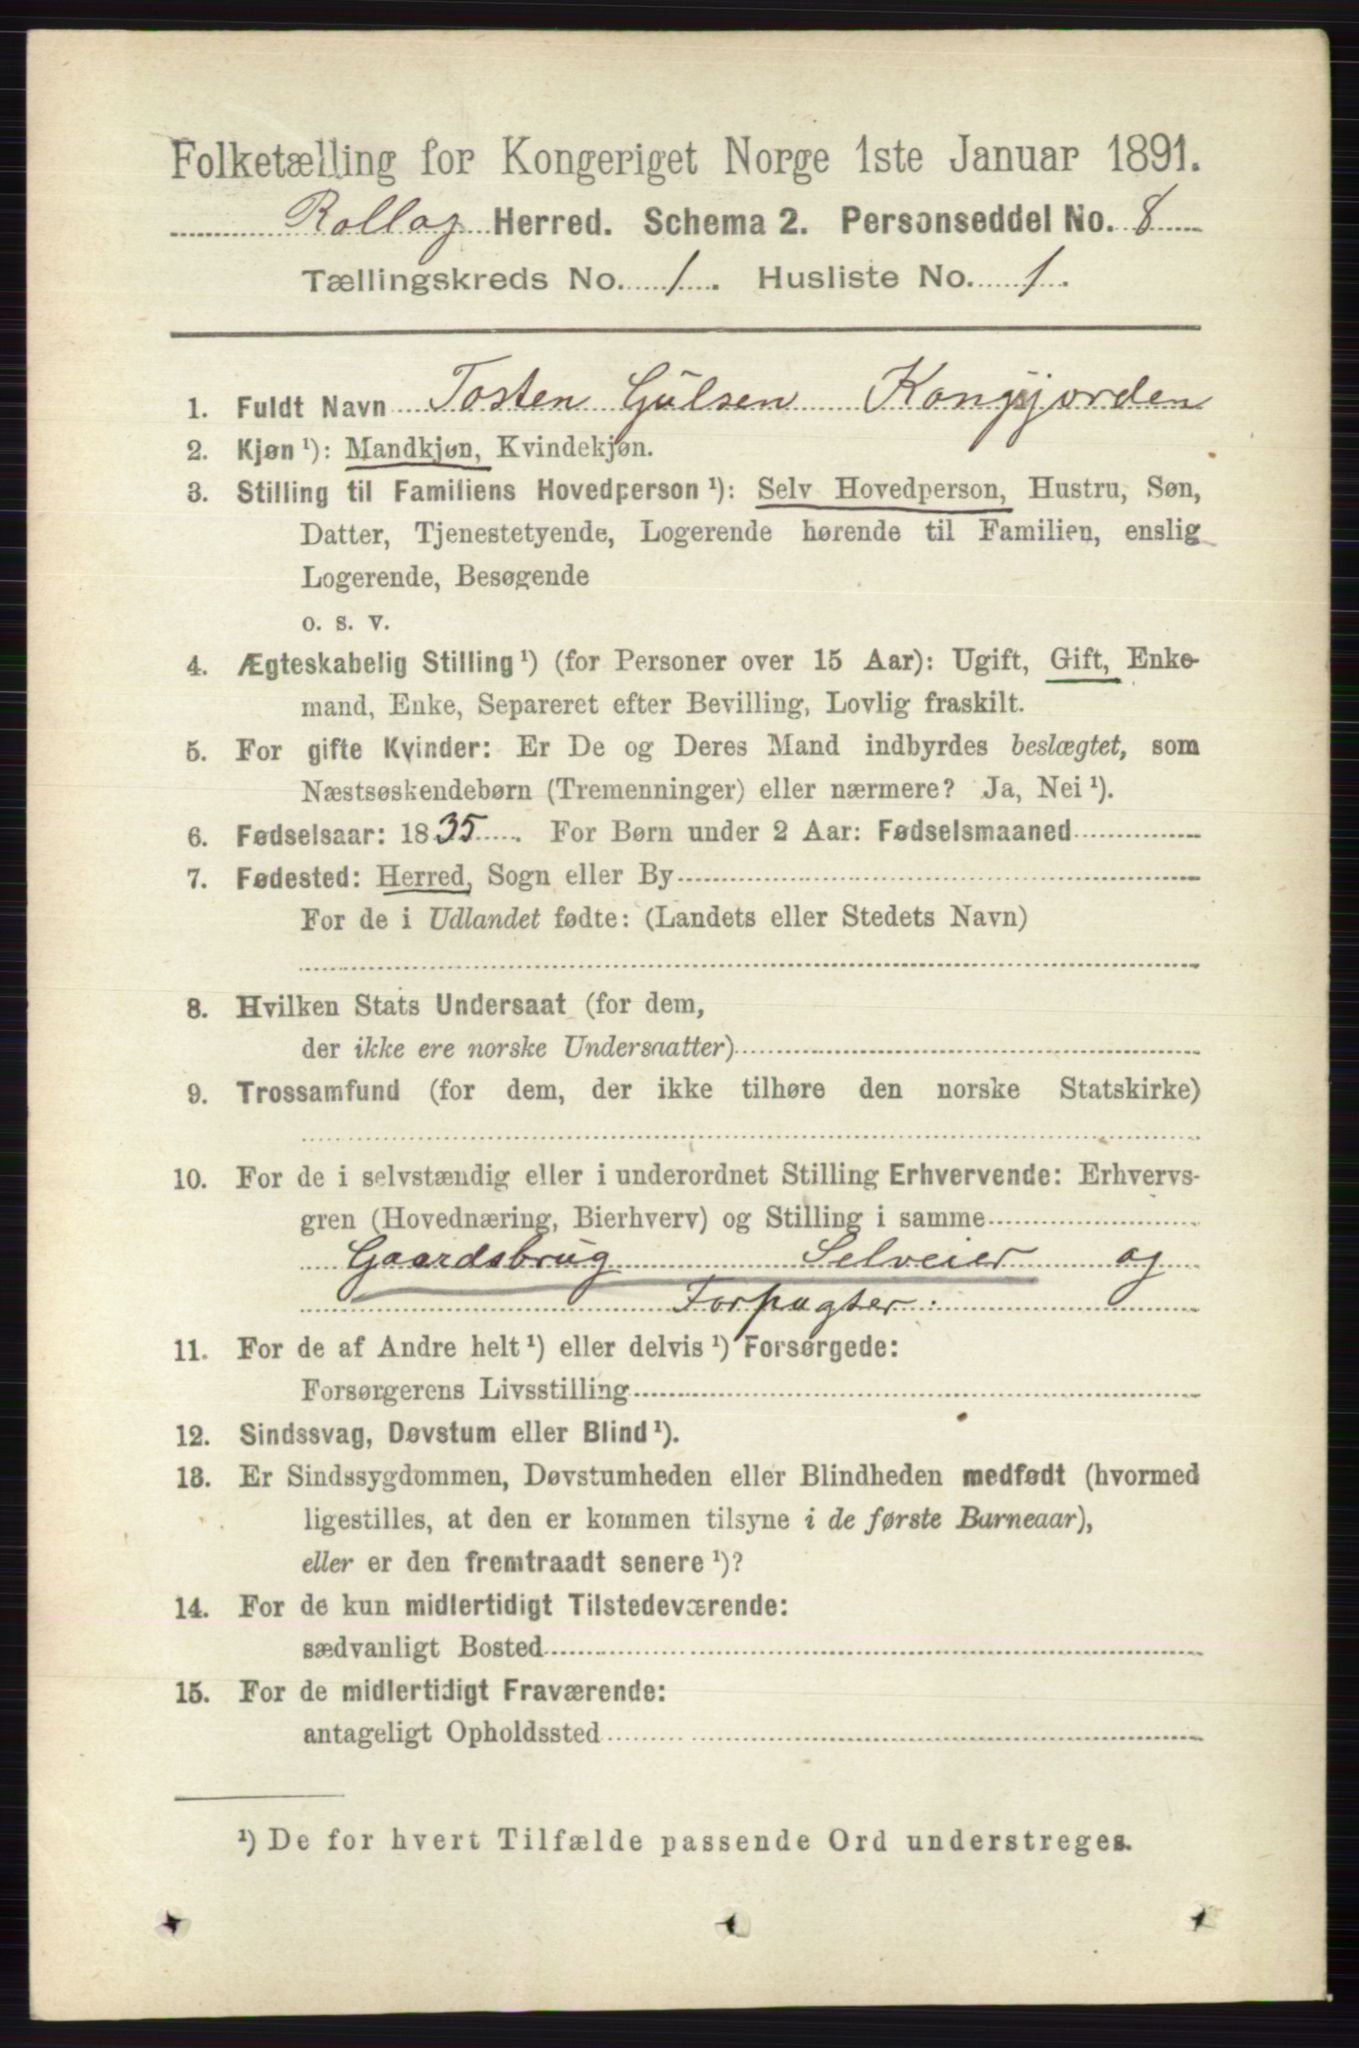 Folketælling for Kongeriget Norge 1ste Januar 1891.
Rollag Herred. Schema 2. Personseddel No. 8
Tællingskreds No. 1. Husliste No. 1.
1. Fuldt Navn Tosten Gulsen Kongsjorden
2. Kjøn ¹): Mandkjøn, Kvindekjøn.
3. Stilling til Familiens Hovedperson ¹): Selv Hovedperson, Hustru, Søn,
Datter, Tjenestetyende, Logerende hørende til Familien, enslig
Logerende, Besøgende
o. s. v.
4. Ægteskabelig Stilling ¹) (for Personer over 15 Aar): Ugift, Gift, Enke-
mand, Enke, Separeret efter Bevilling, Lovlig fraskilt.
5. For gifte Kvinder: Er De og Deres Mand indbyrdes beslægtet, som
Næstsøskendebørn (Tremenninger) eller nærmere? Ja, Nei ¹).
6. Fødselsaar: 1835. For Børn under 2 Aar: Fødselsmaaned
7. Fødested: Herred, Sogn eller By
For de i Udlandet fødte: (Landets eller Stedets Navn)
8. Hvilken Stats Undersaat (for dem,
der ikke ere norske Undersaatter)
9. Trossamfund (for dem, der ikke tilhøre den norske Statskirke)
10. For de i selvstændig eller i underordnet Stilling Erhvervende: Erhvervs-
gren (Hovednæring, Bierhverv) og Stilling i samme
Gaardsbrug Selveier og
Forpagter.
11. For de af Andre helt ¹) eller delvis ¹) Forsørgede:
Forsørgerens Livsstilling
12. Sindssvag, Døvstum eller Blind ¹).
13. Er Sindssygdommen, Døvstumheden eller Blindheden medfødt (hvormed
ligestilles, at den er kommen tilsyne i de første Barneaar),
eller er den fremtraadt senere ¹)?
14. For de kun midlertidigt Tilstedeværende:
sædvanligt Bosted
15. For de midlertidigt Fraværende:
antageligt Opholdssted
¹) De for hvert Tilfælde passende Ord understreges.